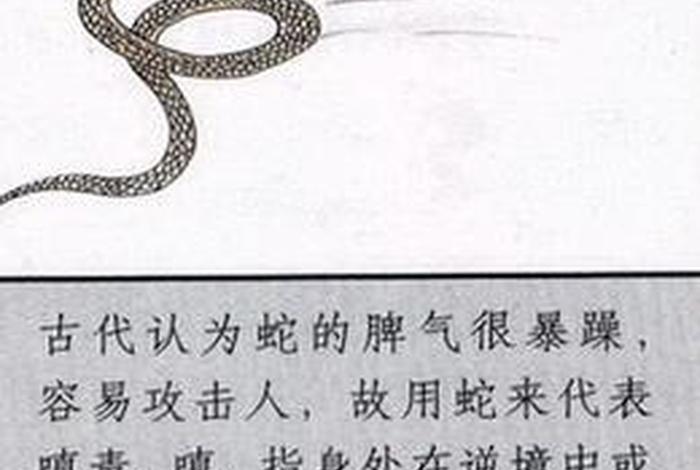 古代认为蛇的脾气很暴躁，
容易攻击人，故用蛇来代表
嗔毒。嗔，指身处在逆境中或